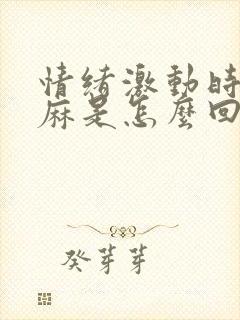 情緒激動時
麻是怎麼回
癸芽芽